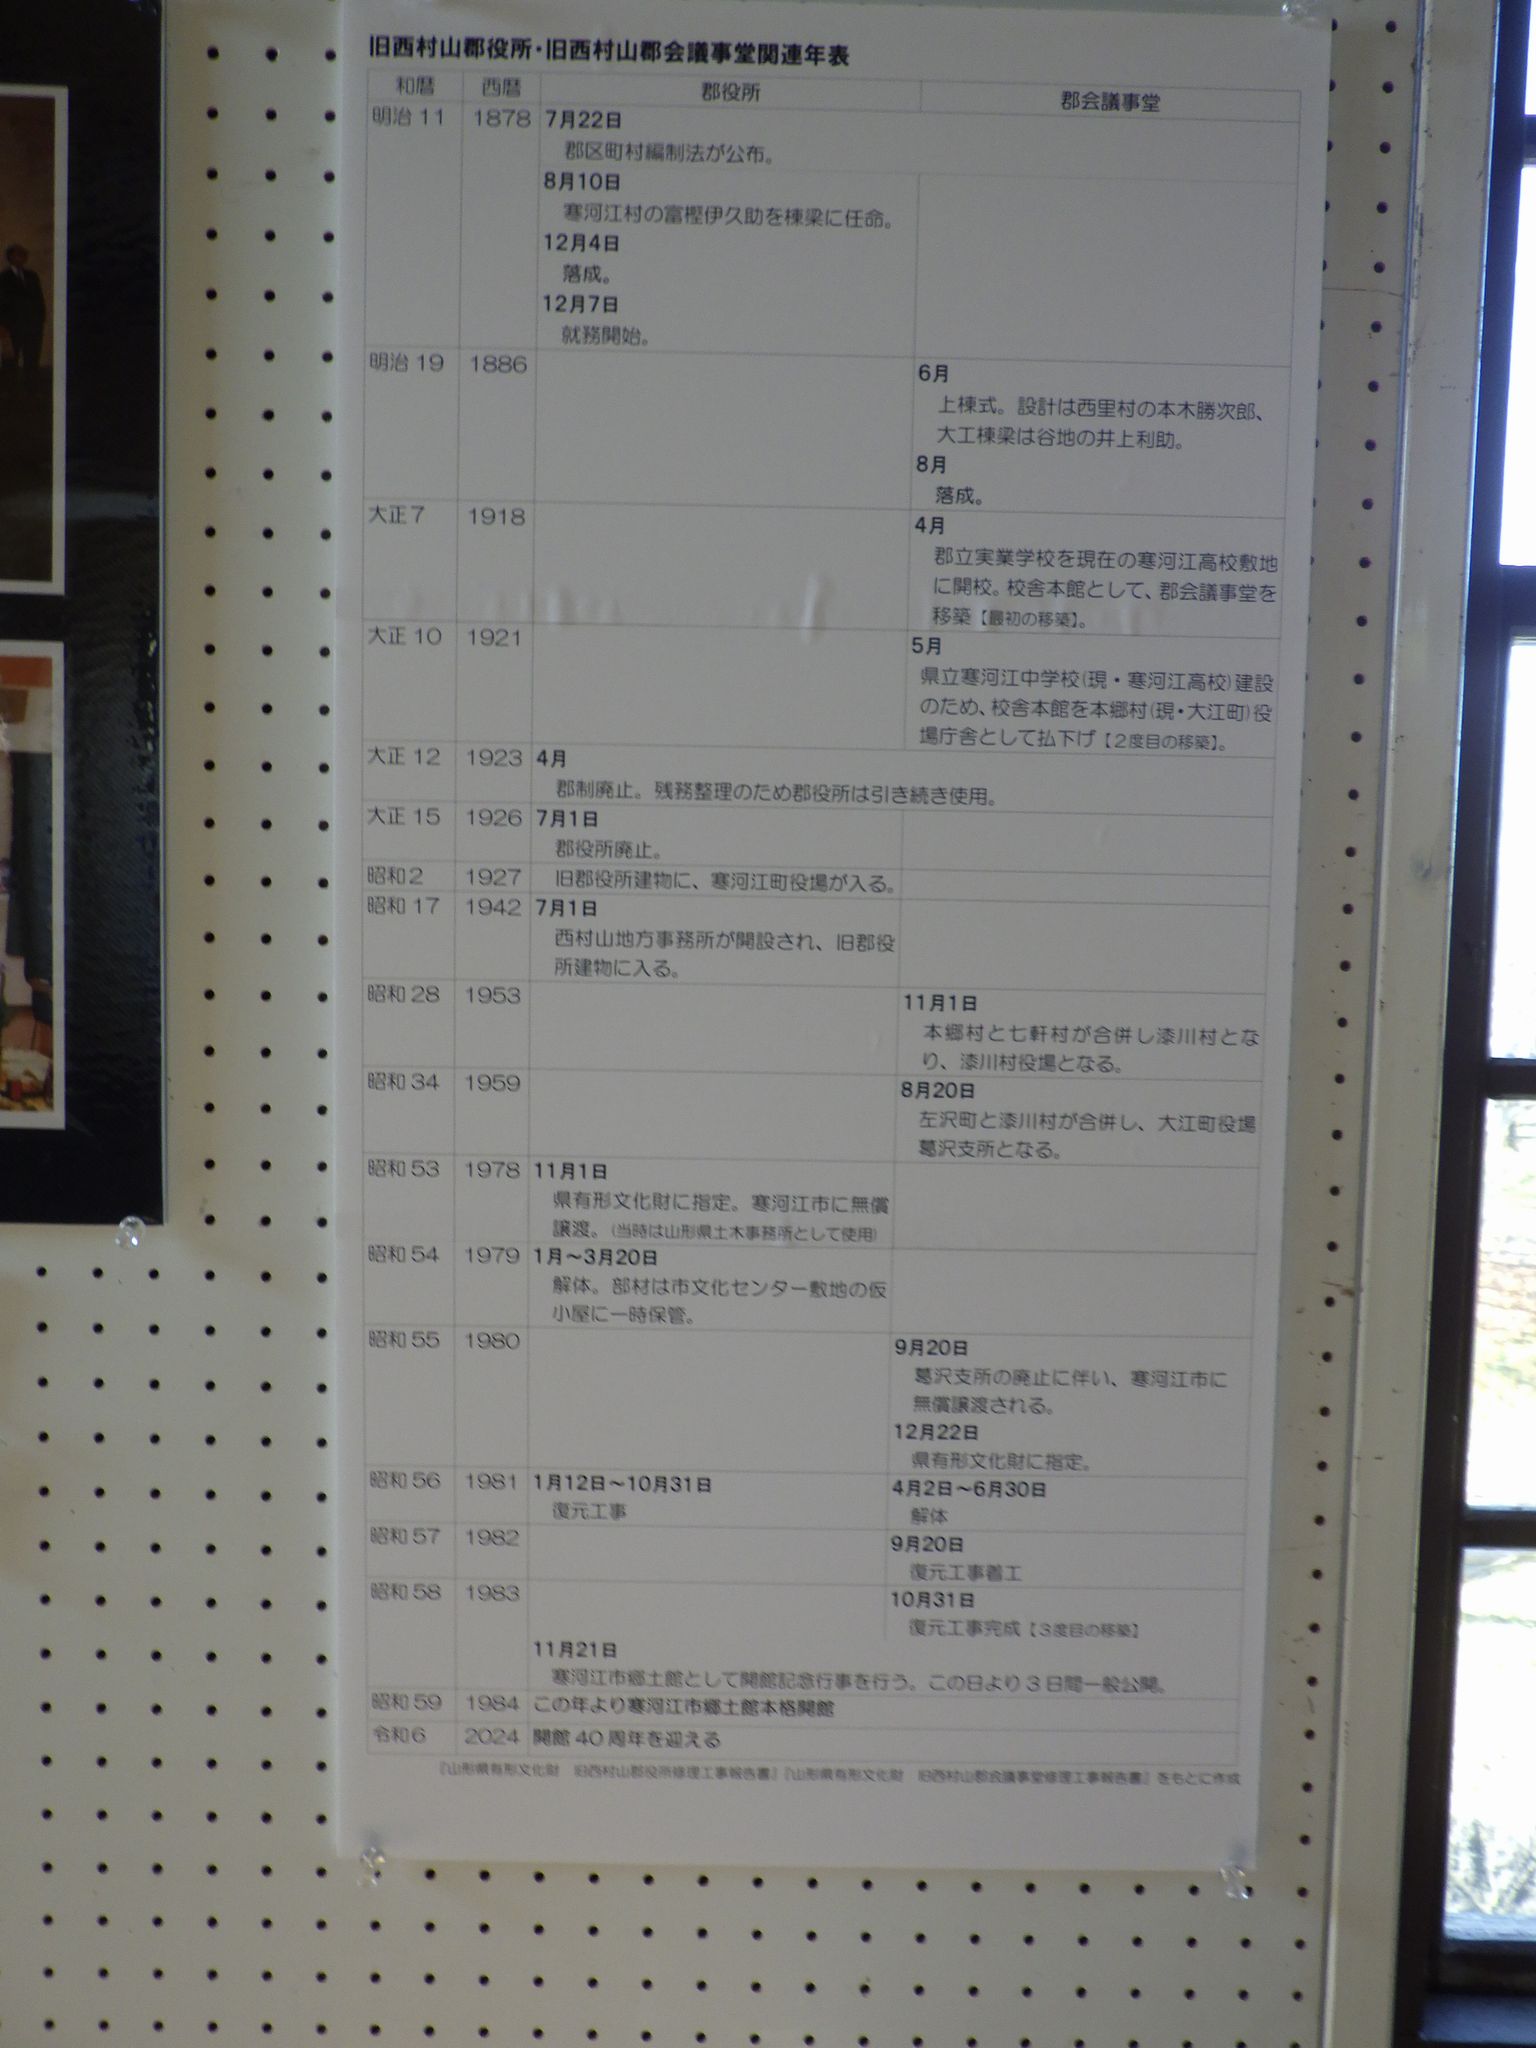 旧西村山郡役所・旧西村山郡会議事堂関連年表
和暦 西暦 郡役所 郡会議事堂
明治11 1878 7月22日
郡区町村編制法が公布。
8月10日
寒河江村の富樫伊久助を棟梁に任命。
12月4日
落成。
12月7日
就務開始。
明治19 1886 6月
上棟式。設計は西里村の本木勝次郎、
大工棟梁は谷地の井上利助。
8月
落成。
大正7 1918 4月
郡立実業学校を現在の寒河江高校敷地
に開校。校舎本館として、郡会議事堂を
移築【最初の移築】。
大正10 1921 5月
県立寒河江中学校(現・寒河江高校)建設
のため、校舎本館を本郷村(現・大江町)役
場庁舎として払下げ【2度目の移築】。
大正12 1923 4月
郡制廃止。残務整理のため郡役所は引き続き使用。
大正15 1926 7月1日
郡役所廃止。
昭和2 1927 旧郡役所建物に、寒河江町役場が入る。
昭和17 1942 7月1日
西村山地方事務所が開設され、旧郡役
所建物に入る。
昭和28 1953 11月1日
本郷村と七軒村が合併し漆川村とな
り、漆川村役場となる。
昭和34 1959 8月20日
左沢町と漆川村が合併し、大江町役場
葛沢支所となる。
昭和53 1978 11月1日
県有形文化財に指定。寒河江市に無償
譲渡。(当時は山形県土木事務所として使用)
昭和54 1979 1月～3月20日
解体。部材は市文化センター敷地の仮
小屋に一時保管。
昭和55 1980 9月20日
葛沢支所の廃止に伴い、寒河江市に
無償譲渡される。
12月22日
県有形文化財に指定。
昭和56 1981 1月12日～10月31日 4月2日～6月30日
復元工事 解体
昭和57 1982 9月20日
復元工事着工
昭和58 1983 10月31日
復元工事完成【3度目の移築】
11月21日
寒河江市郷土館として開館記念行事を行う。この日より3日間一般公開。
昭和59 1984 この年より寒河江市郷土館本格開館
令和6 2024 開館40周年を迎える
『山形県有形文化財 旧西村山郡役所修理工事報告書』『山形県有形文化財 旧西村山郡会議事堂修理工事報告書』をもとに作成